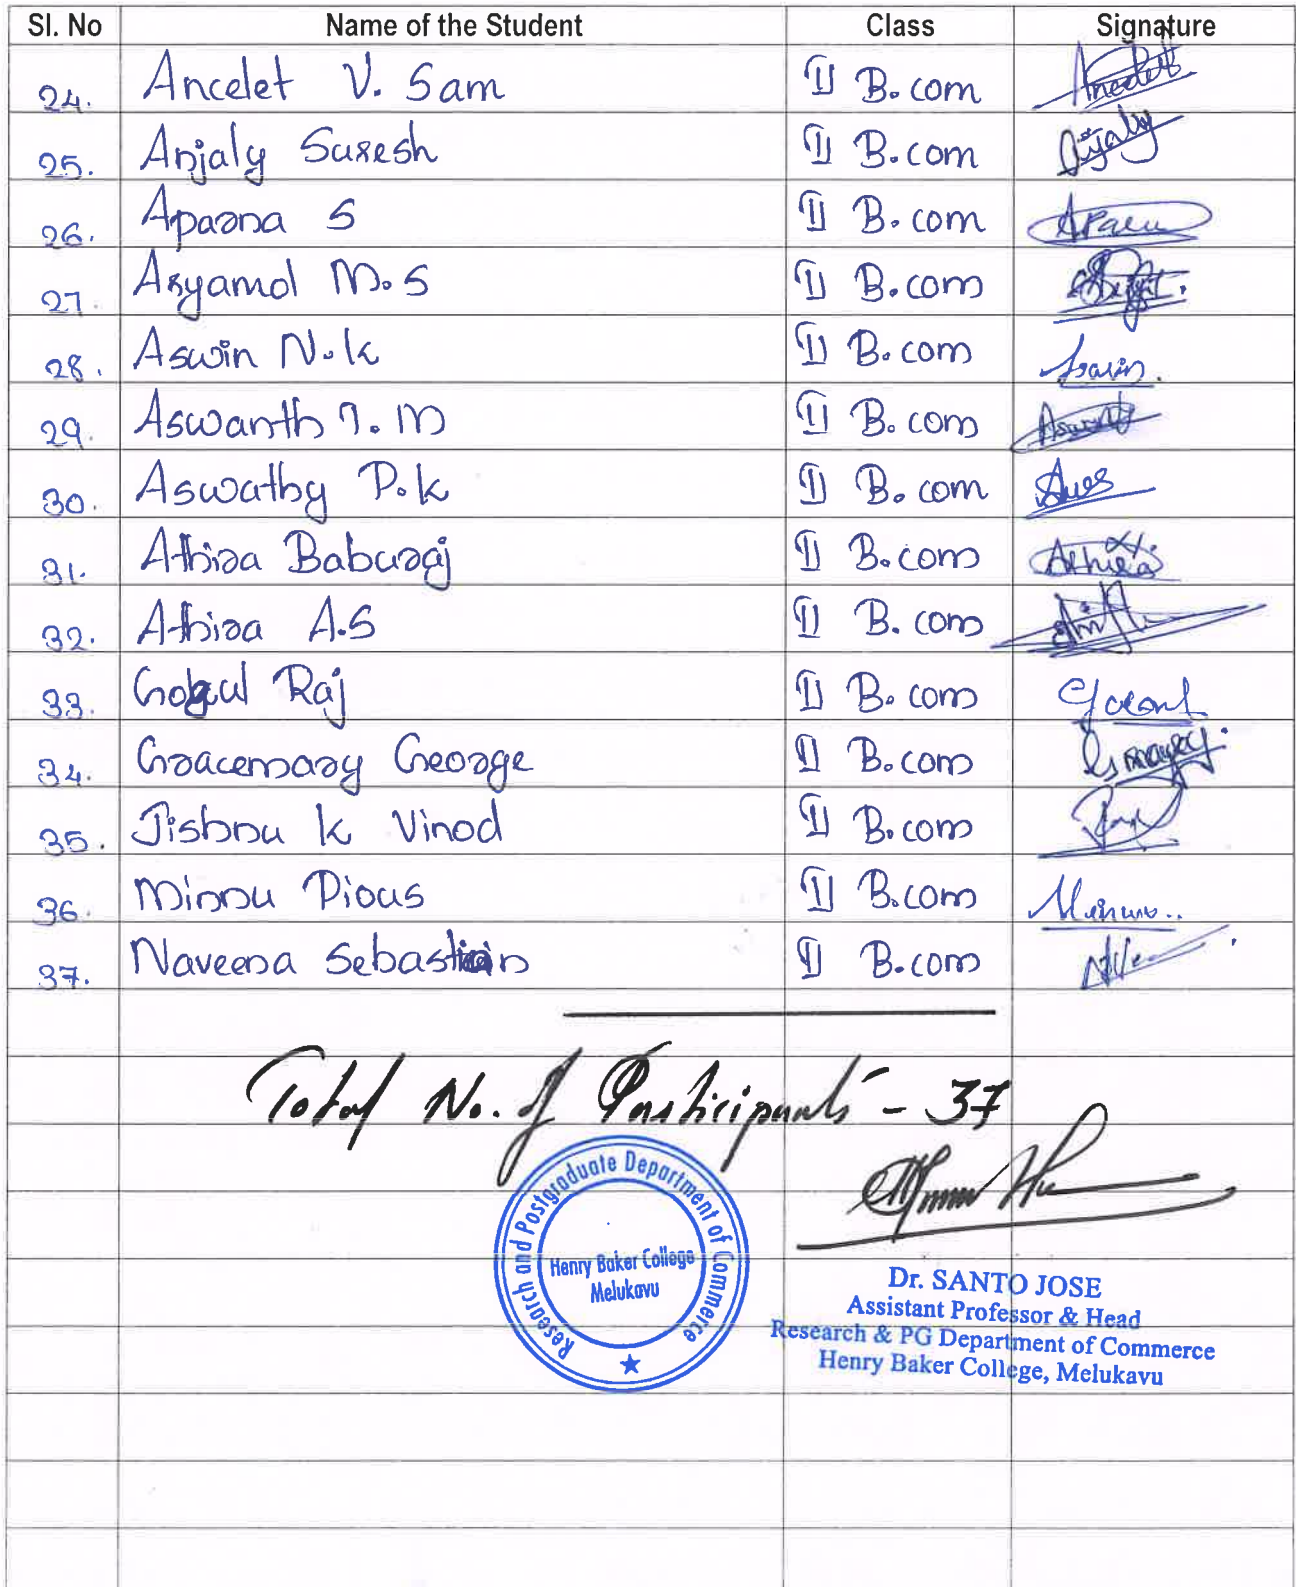 Sl. No Name of the Student Class Signature
24. Ancelet V. Sam II B.com
25. Anjaly Suresh II B.com Anjaly
26. Aparna S II B.com
27. Aryamol M.S II B.com
28. Aswin N.k II B.com Aswin.
29. Aswanth T.M II B.com
30. Aswathy P.k II B.com
31. Athira Baburaj II B.com Athira
32. Athira A.S II B.com
33. Gokul Raj II B.com
34. Gracemary George II B.com
35. Jishnu k Vinod II B.com
36. Minnu Pious II B.com
37. Naveena Sebastian II B.com
Total No. of Participants - 37
Research and Postgraduate Department of Commerce
Henry Baker College
Melukavu
Dr. SANTO JOSE
Assistant Professor & Head
Research & PG Department of Commerce
Henry Baker College, Melukavu